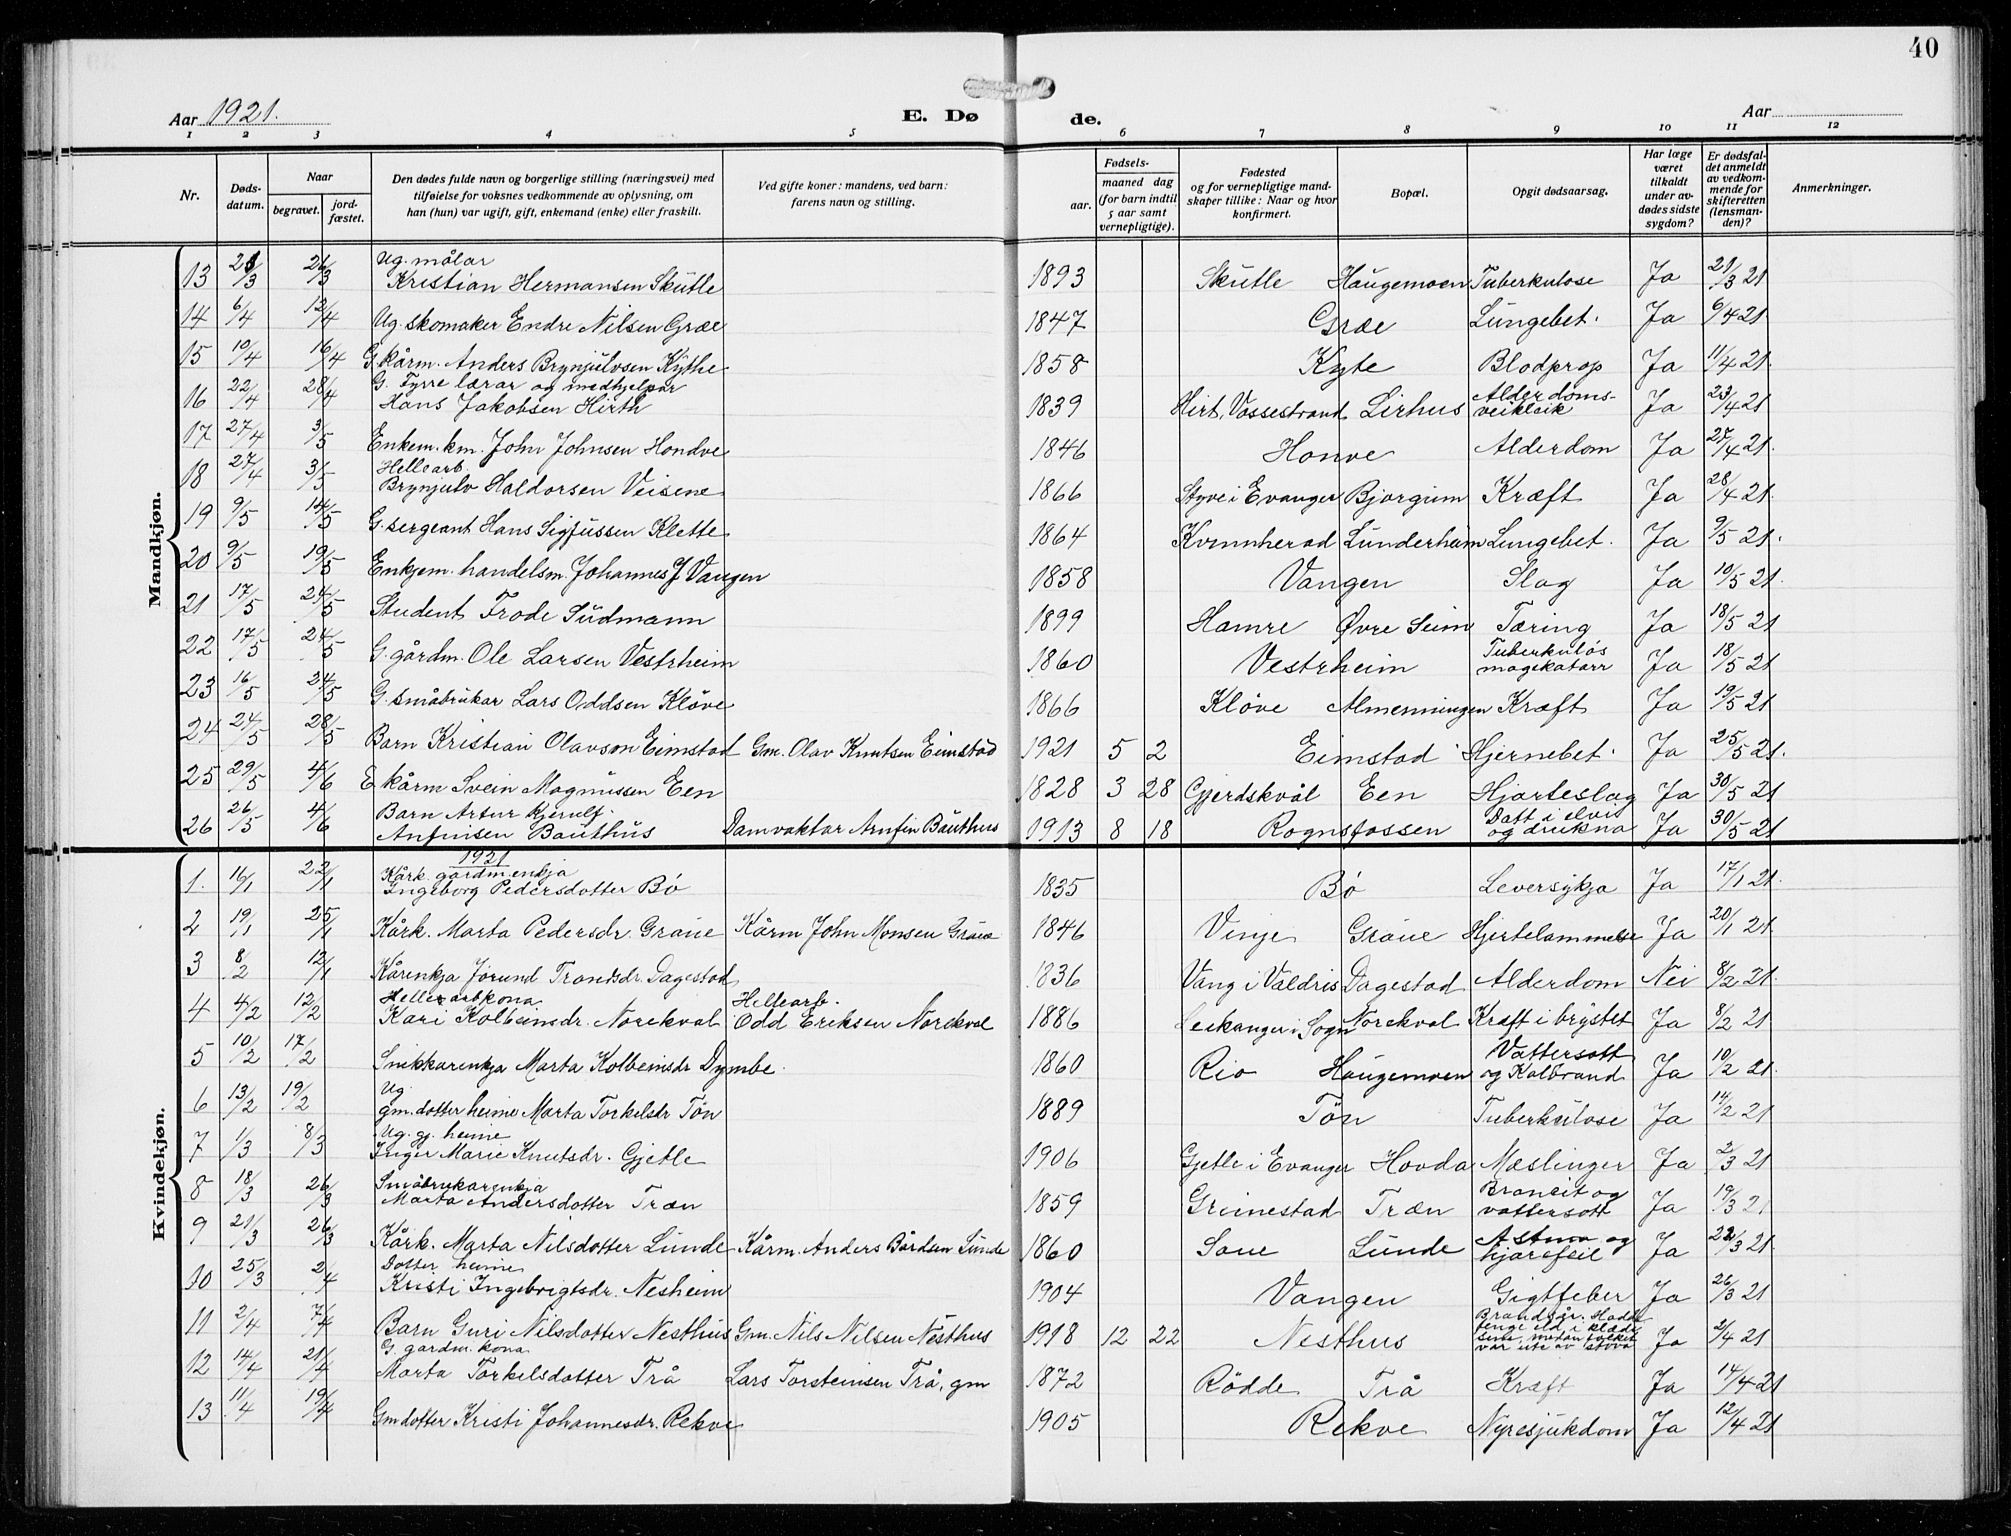 40
Aar 1921.
E. Dø
de.
Aar
1 2 3 4 5 6 7 8 9 10 11 12
Nr.
Døds-
datum.
Naar
begravet.
jord-
fæstet.
Den dødes fulde navn og borgerlige stilling (næringsvei) med
tilføielse for voksnes vedkommende av oplysning, om
han (hun) var ugift, gift, enkemand (enke) eller fraskilt.
Ved gifte koner: mandens, ved barn:
farens navn og stilling.
Fødsels-
aar.
maaned dag
(for barn indtil
5 aar samt
vernepligtige).
Fødested
og for vernepligtige mand-
skaper tillike: Naar og hvor
konfirmert.
Bopæl.
Opgit dødsaarsag.
Har læge
været
tilkaldt
under av-
dødes sidste
sygdom?
Er dødsfal-
det anmeldt
av vedkom-
mende for
skifteretten
(lensman-
den)?
Anmerkninger.
Mandkjøn.
Ug. målar
13 21/3 26/3 Kristian Hermansen Skutle 1893 Skutle Haugemoen Tuberkulose Ja 21/3 21
14 6/4 12/4 Ug. skomaker Endre Nilsen Græe 1847 Græe Lungebet. Ja 6/4 21
15 10/4 16/4 G. kårm. Anders Brynjulvsen Kythe 1858 Kyte Blodprop Ja 11/4 21
G. Fyrre lærar og medhjelpar Alderdoms-
16 22/4 28/4 Hans Jakobsen Hirth 1839 Hirt, Vossestrand Lirhus veikleik Ja 23/4 21
17 27/4 3/5 Enkem. km. John Johnsen Hondve 1846 Honve Alderdom Ja 27/4 21
Hellearb.
18 27/4 3/5 Brynjulv Haldorsen Veisene 1866 Styve i Evanger Bjorgum Kræft Ja 28/4 21
19 9/5 14/5 G. sergeant Hans Sigfussen Klette 1864 Kvinnherad Lunderheim Lungebet. Ja 9/5 21
20 9/5 19/5 Enkjem. handelsm. Johannes J Vangen 1858 Vangen Slag Ja 10/5 21
21 17/5 24/5 Student Frode Sudmann 1899 Hamre Øvre Seim Tæring Ja 18/5 21
Tuberkuløs
22 17/5 24/5 G. gårdm. Ole Larsen Vestrheim 1860 Vestrheim magekatarr Ja 18/5 21
23 16/5 24/5 G. småbrukar Lars Oddsen Kløve 1866 Kløve Almenningen Kræft Ja 19/5 21
24 24/5 28/5 Barn Kristian Olavson Eimstad Gm. Olav Knutsen Eimstad 1921 5 2 Eimstad Hjernebet. Ja 25/5 21
25 29/5 4/6 E kårm Svein Magnussen Een 1828 3 28 Gjerdskvål Een Hjarteslag Ja 30/5 21
Barn Artur Kjerulf Datt i elvi
26 26/5 4/6 Anfinsen Bauthus Damvaktar Arnfin Bauthus 1913 8 18 Rognsfossen og drukna Ja 30/5 21
Kvindekjøn.
1921
Kårk. gardm.enkja
1. 16/1 22/1 Ingeborg Pedersdotter Bø 1835 Bø Leversykja Ja 17/1 21
2 19/1 25/1 Kårk. Marta Pedersdr. Graue Kårm John Monsen Graue 1846 Vinje Graue Hjertelammelse Ja 20/1 21
3 8/2 12/1 Kårenkja Jorund Trondsdr. Dagestad 1836 Vang i Valdris Dagestad Alderdom Nei 8/2 21
Hellearbkona Hellearb.
4 4/2 12/2 Kari Kolbeinsdr. Norekval Odd Eriksen Norekval 1886 Leikanger i Sogn Norekval Kræft i brystet Ja 8/2 21
Vattersott
5 10/2 17/2 Snikkarenkja Marta Kolbeinsdr Dymbe 1860 Rio Haugemoen og Kolbrand Ja 10/2 21
Ug
6 13/2 19/2 gm. dotter heime Marta Torkelsdr Tøn 1889 Tøn Tuberkulose Ja 14/2 21
Ug. gj. heime
7 1/3 8/3 Inger Marie Knutsdr. Gjetle 1906 Gjetle i Evanger Hovda Mæslinger Ja 2/3 21
Småbrukarenkja Bronkit og
8 18/3 26/3 Marta Andersdotter Træn 1859 Grimestad Træn vattersott Ja 19/3 21
Astma og
9 21/3 26/3 Kårk. Marta Nilsdotter Lunde Kårm. Anders Bårdsen Lunde 1860 Saue Lunde hjartefeil Ja 22/3 21
Dotter heime
10 25/3 2/4 Kristi Ingebrigtsdr. Nesheim 1904 Vangen Gigtfeber Ja 26/3 21
Brandsår. Hadde
fenge eld i klædi
sine, medan folket
11 2/4 7/4 Barn Guri Nilsdotter Nesthus Gm. Nils Nilsen Nesthus 1918 12 22 Nesthus var ute av stova Ja 2/4 21
G. gardm. kona
12 14/4 21/4 Marta Torkelsdotter Trå Lars Torsteinsen Trå, gm 1872 Rødde Trå Kræft Ja 14/4 21
13 11/4 19/4 Gmdotter Kristi Johannesdr. Rekve 1905 Rekve Nyresjukdom Ja 12/4 21